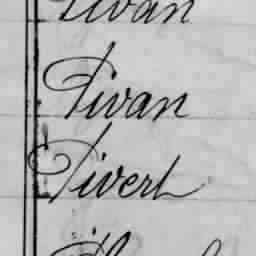 Pivan
Pivan
Pivert